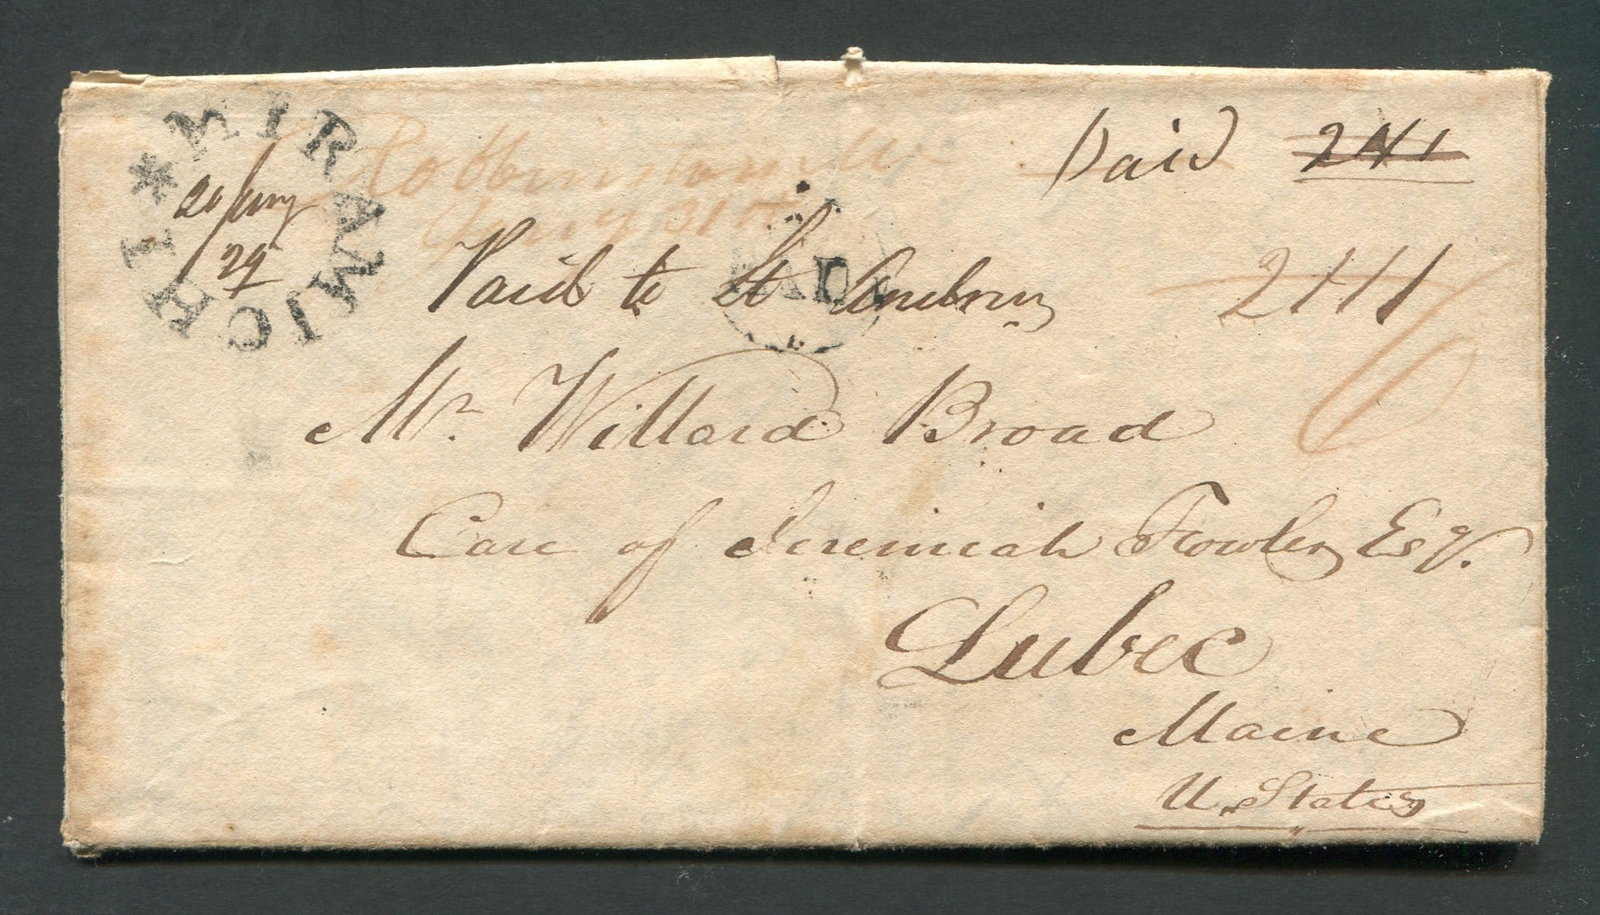 MIRAMICHI *
20 Jany
29
Robbinston Me
Jany 31st
Paid 2/11
Paid to St Andrews
PAID
2/11
6
Mr. Willard Broad
Care of Jeremiah Fowler Esqr.
Lubec
Maine
U. States